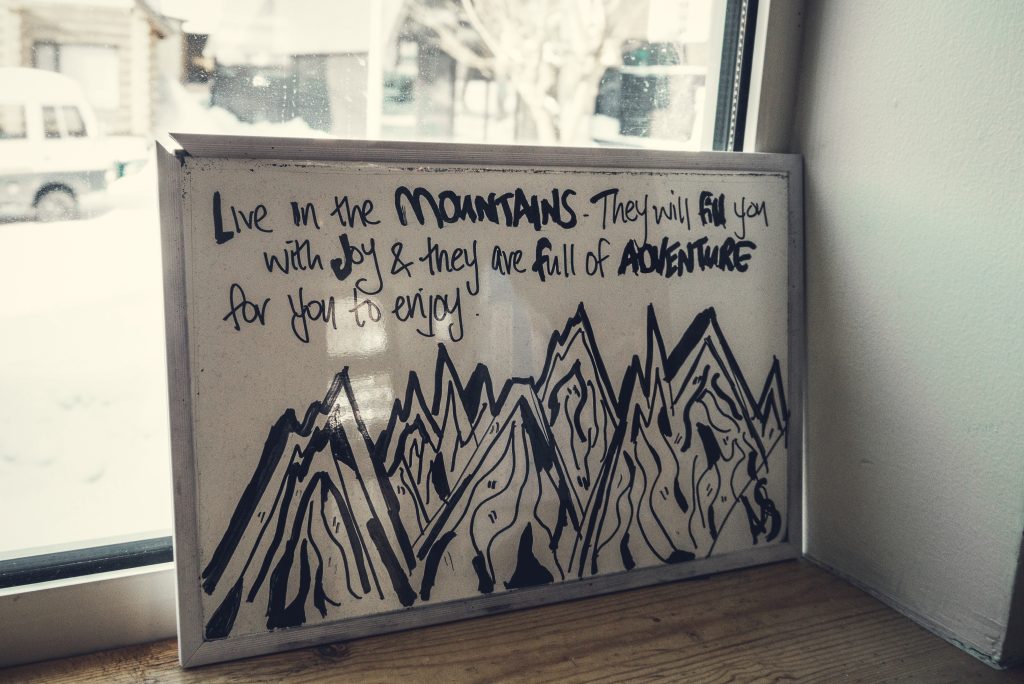 Live in the MOUNTAINS. They will fill you
with Joy & they are full of ADVENTURE
for you to enjoy.